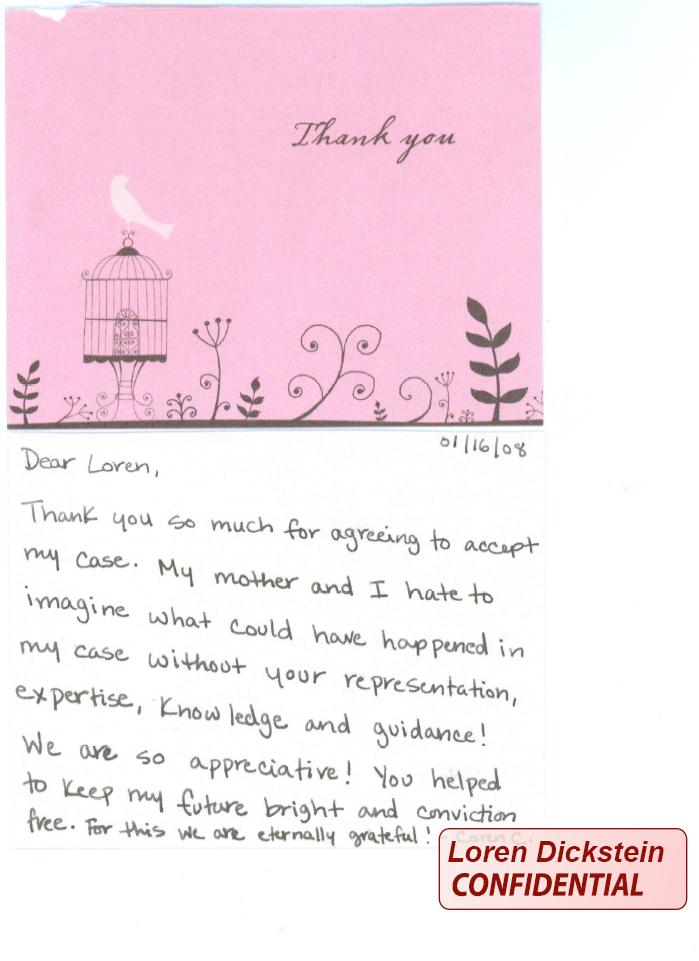 Thank you
01/16/08
Dear Loren,
Thank you so much for agreeing to accept
my case. My mother and I hate to
imagine what could have happened in
my case without your representation,
expertise, knowledge and guidance!
We are so appreciative! You helped
to keep my future bright and conviction
free. For this we are eternally grateful!
Loren Dickstein
CONFIDENTIAL